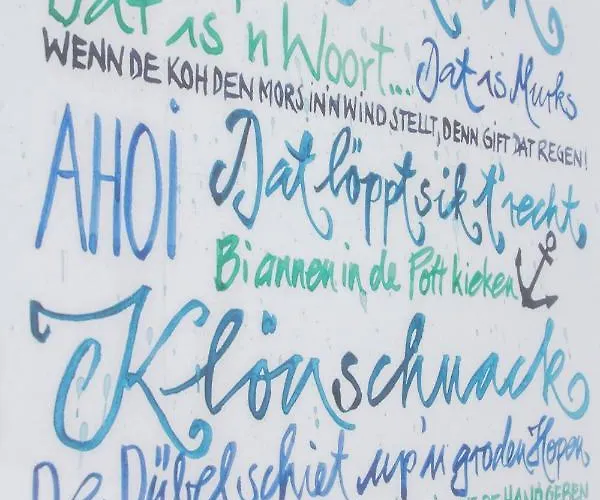 Dat is 'n Woort....
Dat is Murks
WENN DE KOH DEN MORS IN'N WIND STELLT, DENN GIFT DAT REGEN!
AHOI
Dat löppt sik t'recht,
Bi annen in de Pott kieken
Klönschnack
De Dübel schiet up'n groden Hopen,
HAND GEBEN